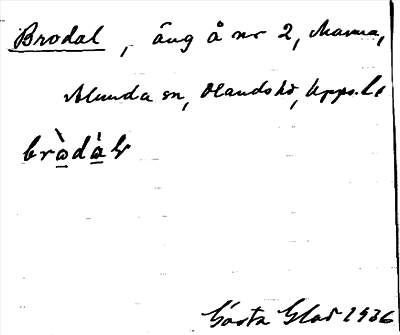 Brodal, äng å nr 2, Marma,
Alunda sn, Olands hd, Upps. l.
bròdàɫ
Gösta Glad 1936